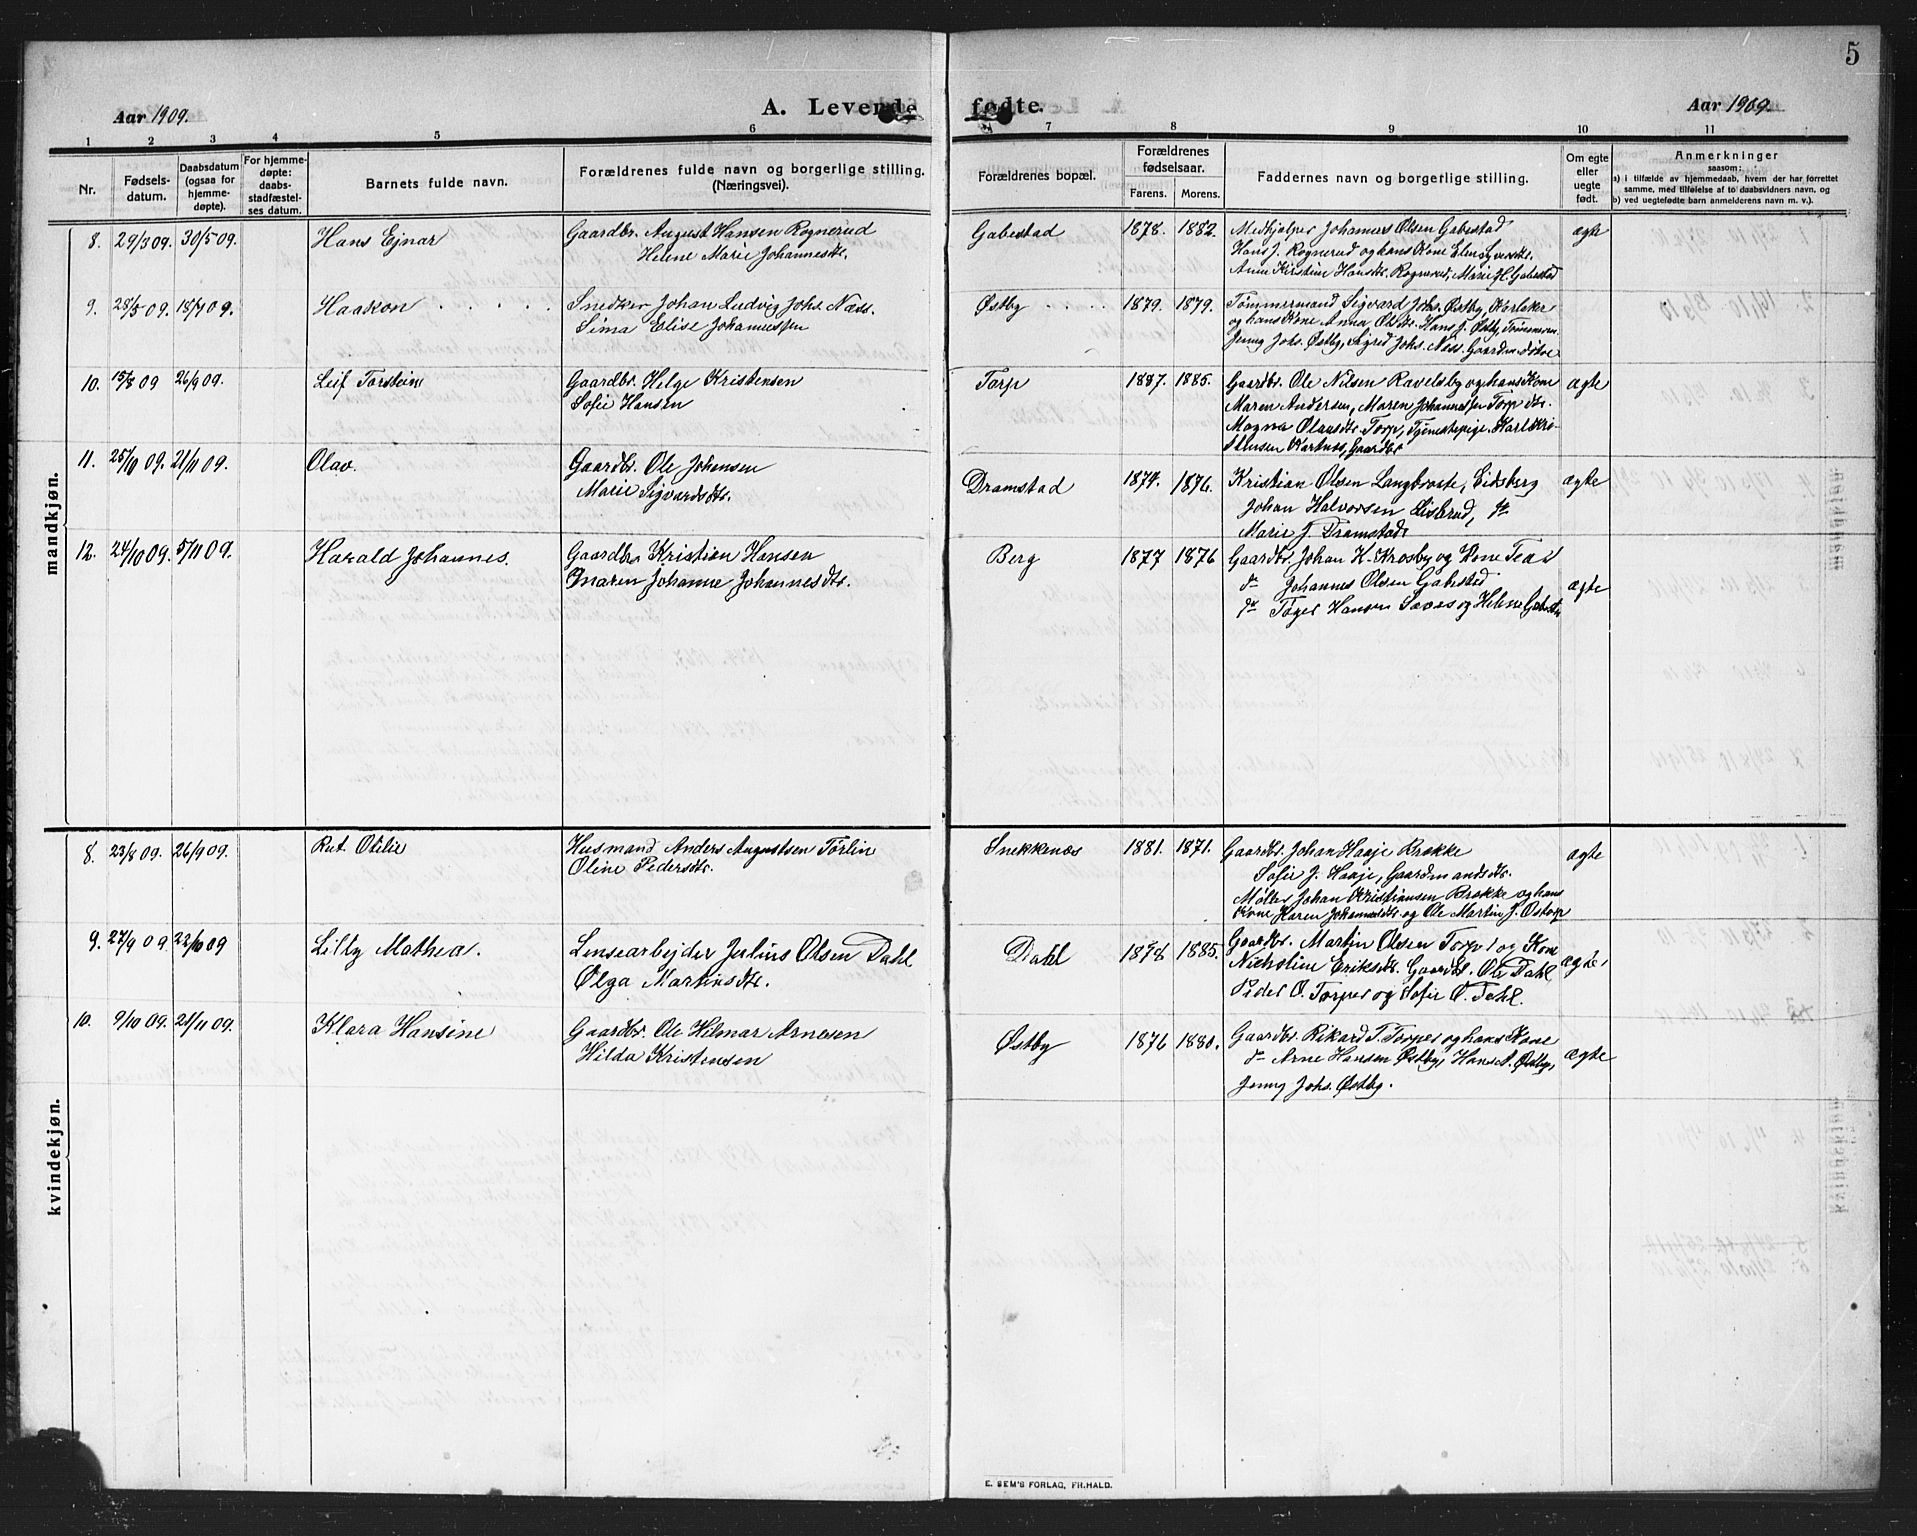 5
Aar 1909. A. Levende fødte. Aar 1909.
1 2 3 4 5 6 7 8 9 10 11
Nr.
Fødsels-
datum.
Daabsdatum
(ogsaa for
hjemme-
døpte).
For hjemme-
døpte:
daabs-
stadfæstel-
ses datum.
Barnets fulde navn.
Forældrenes fulde navn og borgerlige stilling.
(Næringsvei).
Forældrenes bopæl.
Forældrenes
fødselsaar.
Farens. Morens.
Faddernes navn og borgerlige stilling.
Om egte
eller
uegte
født.
Anmerkninger
saasom:
a) i tilfælde av hjemmedaab, hvem der har forrettet
samme, med tilføielse af to daabsvidners navn, og
b) ved uegtefødte barn anmelderens navn m. v.).
mandkjøn.
8. 29/3 09. 30/5 09. Hans Ejnar
Gaardbr. August Hansen Rognerud
Helene Marie Johannesdtr.
Gabestad 1878. 1882.
Medhjelper Johannes Olsen Gabestad
Hans J. Rognerud og hans Kone Elen Syversdtr.
Anne Kirstine Hansdtr. Rognerud, Marie H. Gabestad
ægte
9. 28/5 09. 18/7 09. Haakon
Snedker Johan Ludvig Johs. Næss.
Sima Elise Johannessen
Østby 1879. 1879.
Tømmermand Sigvard Johs. Østby, Karleker
og hans Kone Anna Olsdtr. Hans J. Østby,
Jenny Johs. Østby, Sigrid Johs. Næss.
10. 15/8 09 26/9 09. Leif Torstein
Gaardbr. Helge Kristensen
Sofie Hansen
Torp 1887. 1885.
Gaardbr. Ole Nilsen Ravelsby og hans Kone
Maren Andersen, Maren Johannessen Torp
Magna Olausdtr. Torp, Tjenestepige. Karl Kri-
stensen Gaardbr
ægte
11. 25/10 09. 21/11 09. Olav.
Gaardbr. Ole Johansen
Marie Sigvardsdtr.
Dramstad 1874. 1876.
Kristian Olsen Langbraate, Eidsberg
Johan Halvorsen Lislerud, do
Marie J. Dramstad
ægte
12. 24/10 09. 5/11 09. Harald Johannes.
Gaardbr Kristian Hansen
Maren Johanne Johannesdtr.
Berg 1877 1876
Gaardbr. Johan H. Krosby og Kone Tea
do Johannes Olsen Gabestad
do Tøger Hansen og Helene Gabestad
ægte
kvindekjøn.
8. 23/8 09. 26/9 09. Rut Otilie
Husmand Anders Augustsen Torlin
Oline Pedersdtr.
Snekkenæs 1881. 1871.
Gaardbr. Johan Haaje Brække
Sofie J. Haaje, Gaardmandsdtr.
Møller Johan Kristiansen Brække og hans
Kone Karen Johannesdtr og Ole Martin J. Østorp
ægte
9. 27/9 09. 22/10 09 Lilly Mathea.
Linsearbejder Julius Olsen Dahl
Olga Martinsdtr.
Dahl 1878 1885.
Gaardbr. Martin Olsen Torp og Kone
Nicholine Eriksdtr. Gaardbr. Ole Dahl
Peder O. Torper og Sofie O. Dahl.
ægte,
10. 9/10 09. 21/11 09. Klara Hansine
Gaardbr. Ole Hilmar Arnesen
Hilda Kristensen
Østby 1876 1880.
Gaardbr. Rikard T. Torper og hans Kone
do Arne Hansen Østby, Hans A. Østby,
Jenny Johs. Østby.
ægte
E. SEM'S FORLAG, FR.HALD.